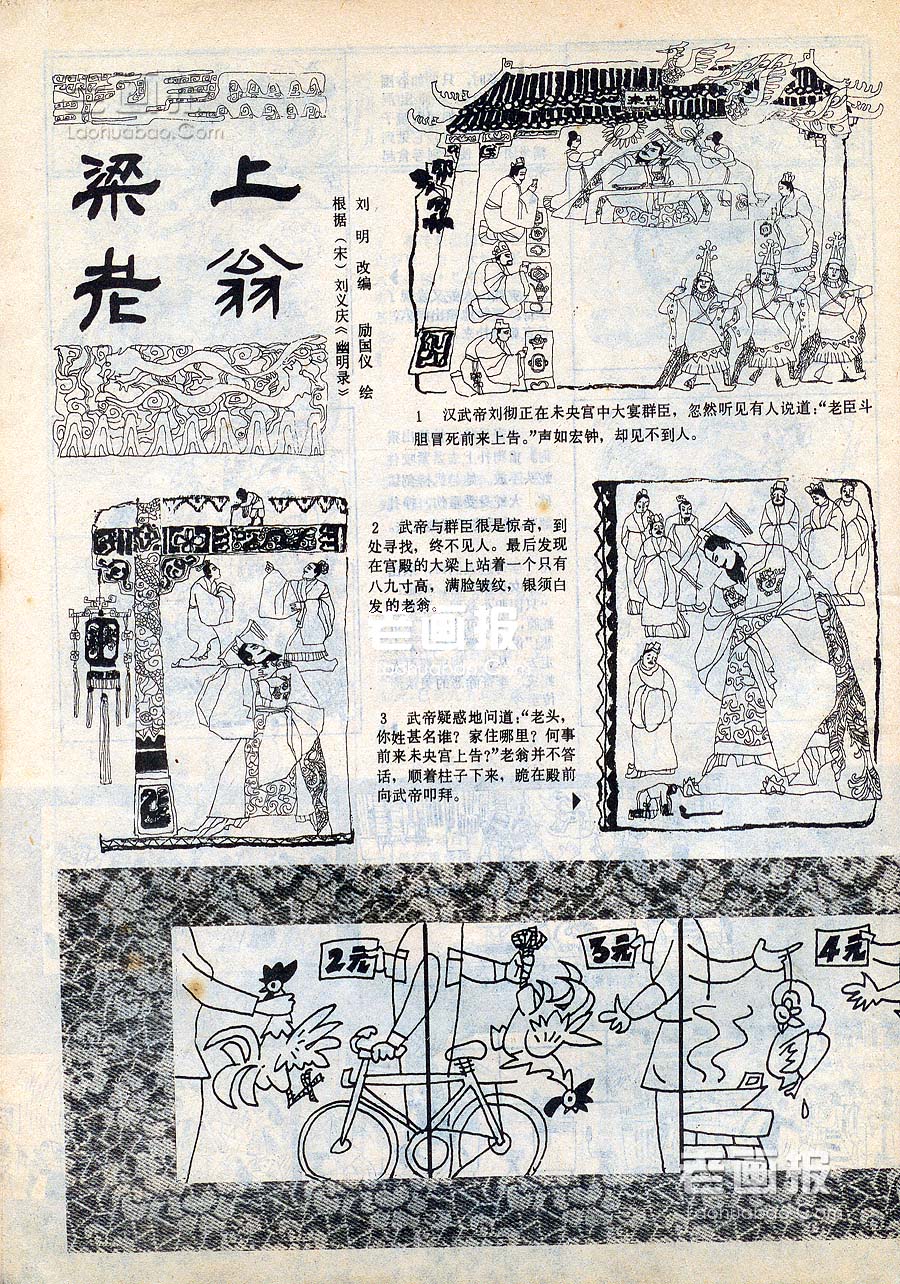 梁上
老翁
刘明 改编 励国仪 绘
根据（宋）刘义庆《幽明录》
未央
1 汉武帝刘彻正在未央宫中大宴群臣，忽然听见有人说道：“老臣斗
胆冒死前来上告。”声如宏钟，却见不到人。
2 武帝与群臣很是惊奇，到
处寻找，终不见人。最后发现
在宫殿的大梁上站着一个只有
八九寸高，满脸皱纹，银须白
发的老翁。
3 武帝疑惑地问道：“老头，
你姓甚名谁？家住哪里？何事
前来未央宫上告？”老翁并不答
话，顺着柱子下来，跪在殿前
向武帝叩拜。
2元
3元
4元
老画报
Laohuabao.Com
老画报
Laohuabao.Com
老画报
Laohuabao.Com